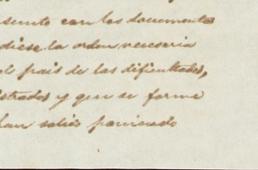 sunto con los documentos
diese la orden necesaria
del pais de las dificultades,
strados y que se forme
han salido